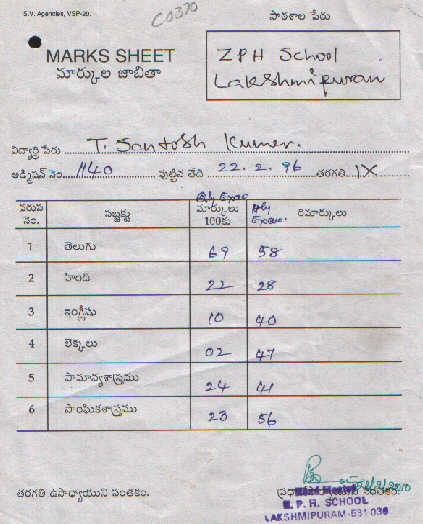 S.V. Agencies, VSP-20.
C0370
పాఠశాల పేరు
MARKS SHEET
మార్కుల జాబితా
ZPH School
Lakshmipuram
విద్యార్థి పేరు T. Santosh Kumar.
అడ్మిషన్ నెం. 1140 పుట్టిన తేది 22.2.96 తరగతి IX
వరుస నెం. సబ్జక్టు మార్కులు 100కు రిమార్కులు
1 తెలుగు 69 58
2 హింది 22 28
3 ఇంగ్లీషు 10 40
4 లెక్కలు 02 47
5 సామాన్యశాస్త్రము 24 41
6 సాంఘికశాస్త్రము 23 56
తరగతి ఉపాధ్యాయుని సంతకం.
Head Master
Z. P. H. SCHOOL
LAKSHMIPURAM-531 036